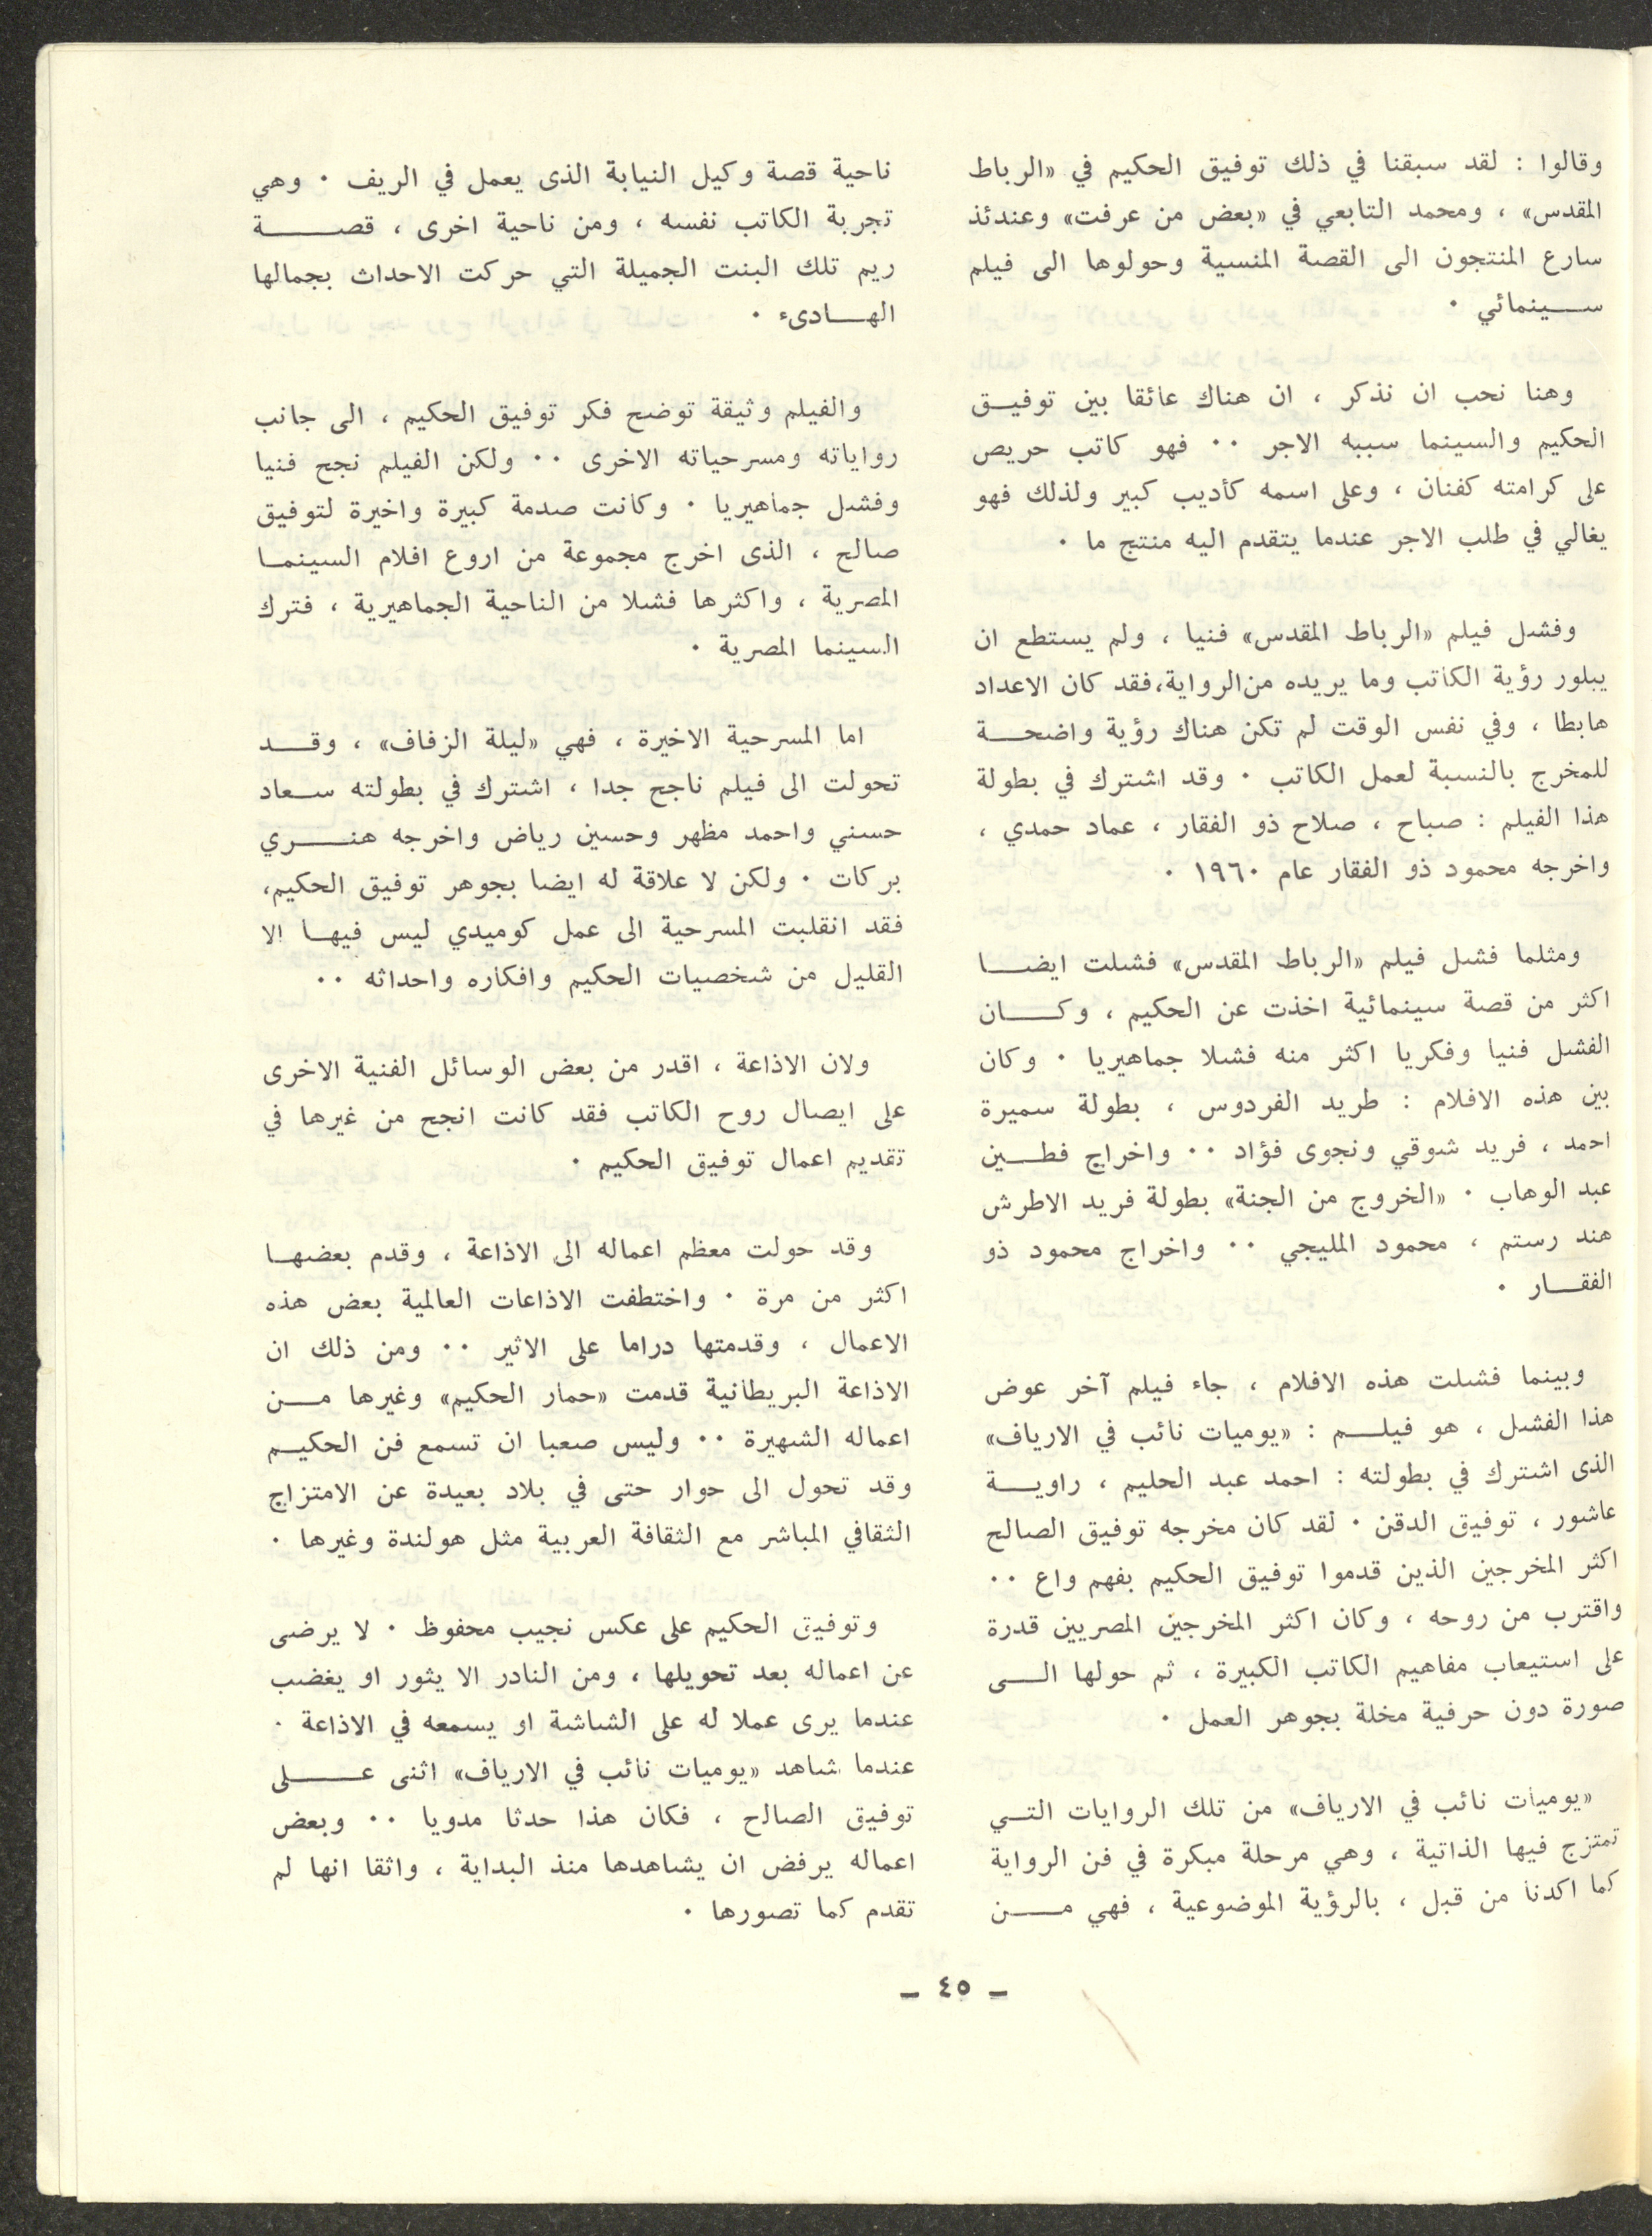 وقالوا : لقد سبقنا في ذلك توفيق الحكيم في «الرباط
المقدس» ، ومحمد التابعي في «بعض من عرفت» وعندئذ
سارع المنتجون الى القصة المنسية وحولوها الى فيلم
سينمائي ٠
وهنا نحب ان نذكر ، ان هناك عائقا بين توفيق
الحكيم والسينما سببه الاجر ٠٠ فهو كاتب حريص
على كرامته كفنان ، وعلى اسمه كأديب كبير ولذلك فهو
يغالي في طلب الاجر عندما يتقدم اليه منتج ما ٠
وفشل فيلم «الرباط المقدس» فنيا ، ولم يستطع ان
يبلور رؤية الكاتب وما يريده من الرواية، فقد كان الاعداد
هابطا ، وفي نفس الوقت لم تكن هناك رؤية واضحة
للمخرج بالنسبة لعمل الكاتب ٠ وقد اشترك في بطولة
هذا الفيلم : صباح ، صلاح ذو الفقار ، عماد حمدي ،
واخرجه محمود ذو الفقار عام ١٩٦٠ ٠
ومثلما فشل فيلم «الرباط المقدس» فشلت ايضا
اكثر من قصة سينمائية اخذت عن الحكيم ، وكان
الفشل فنيا وفكريا اكثر منه فشلا جماهيريا ٠ وكان
بين هذه الافلام : طريد الفردوس ، بطولة سميرة
احمد ، فريد شوقي ونجوى فؤاد ٠٠ واخراج فطين
عبد الوهاب ٠ «الخروج من الجنة» بطولة فريد الاطرش
هند رستم ، محمود المليجي ٠٠ واخراج محمود ذو
الفقار ٠
وبينما فشلت هذه الافلام ، جاء فيلم آخر عوض
هذا الفشل ، هو فيلم : «يوميات نائب في الارياف»
الذى اشترك في بطولته : احمد عبد الحليم ، راوية
عاشور ، توفيق الدقن ٠ لقد كان مخرجه توفيق الصالح
اكثر المخرجين الذين قدموا توفيق الحكيم بفهم واع ٠٠
واقترب من روحه ، وكان اكثر المخرجين المصريين قدرة
على استيعاب مفاهيم الكاتب الكبيرة ، ثم حولها الى
صورة دون حرفية مخلة بجوهر العمل ٠
«يوميات نائب في الارياف» من تلك الروايات التي
تمتزج فيها الذاتية ، وهي مرحلة مبكرة في فن الرواية
كما اكدنا من قبل ، بالرؤية الموضوعية ، فهي من
ناحية قصة وكيل النيابة الذى يعمل في الريف ٠ وهي
تجربة الكاتب نفسه ، ومن ناحية اخرى ، قصة
ريم تلك البنت الجميلة التي حركت الاحداث بجمالها
الهادىء ٠
والفيلم وثيقة توضح فكر توفيق الحكيم ، الى جانب
رواياته ومسرحياته الاخرى ٠٠ ولكن الفيلم نجح فنيا
وفشل جماهيريا ٠ وكانت صدمة كبيرة واخيرة لتوفيق
صالح ، الذى اخرج مجموعة من اروع افلام السينما
المصرية ، واكثرها فشلا من الناحية الجماهيرية ، فترك
السينما المصرية ٠
اما المسرحية الاخيرة ، فهي «ليلة الزفاف» ، وقد
تحولت الى فيلم ناجح جدا ، اشترك في بطولته سعاد
حسني واحمد مظهر وحسين رياض واخرجه هنري
بركات ٠ ولكن لا علاقة له ايضا بجوهر توفيق الحكيم،
فقد انقلبت المسرحية الى عمل كوميدي ليس فيها الا
القليل من شخصيات الحكيم وافكاره واحداثه ٠٠
ولان الاذاعة ، اقدر من بعض الوسائل الفنية الاخرى
على ايصال روح الكاتب فقد كانت انجح من غيرها في
تقديم اعمال توفيق الحكيم ٠
وقد حولت معظم اعماله الى الاذاعة ، وقدم بعضها
اكثر من مرة ٠ واختطفت الاذاعات العالمية بعض هذه
الاعمال ، وقدمتها دراما على الاثير ٠٠ ومن ذلك ان
الاذاعة البريطانية قدمت «حمار الحكيم» وغيرها من
اعماله الشهيرة ٠٠ وليس صعبا ان تسمع فن الحكيم
وقد تحول الى حوار حتى في بلاد بعيدة عن الامتزاج
الثقافي المباشر مع الثقافة العربية مثل هولندة وغيرها ٠
وتوفيق الحكيم على عكس نجيب محفوظ ٠ لا يرضى
عن اعماله بعد تحويلها ، ومن النادر الا يثور او يغضب
عندما يرى عملا له على الشاشة او يسمعه في الاذاعة ٠
عندما شاهد «يوميات نائب في الارياف» اثنى على
توفيق الصالح ، فكان هذا حدثا مدويا ٠٠ وبعض
اعماله يرفض ان يشاهدها منذ البداية ، واثقا انها لم
تقدم كما تصورها ٠
– ٤٥ –